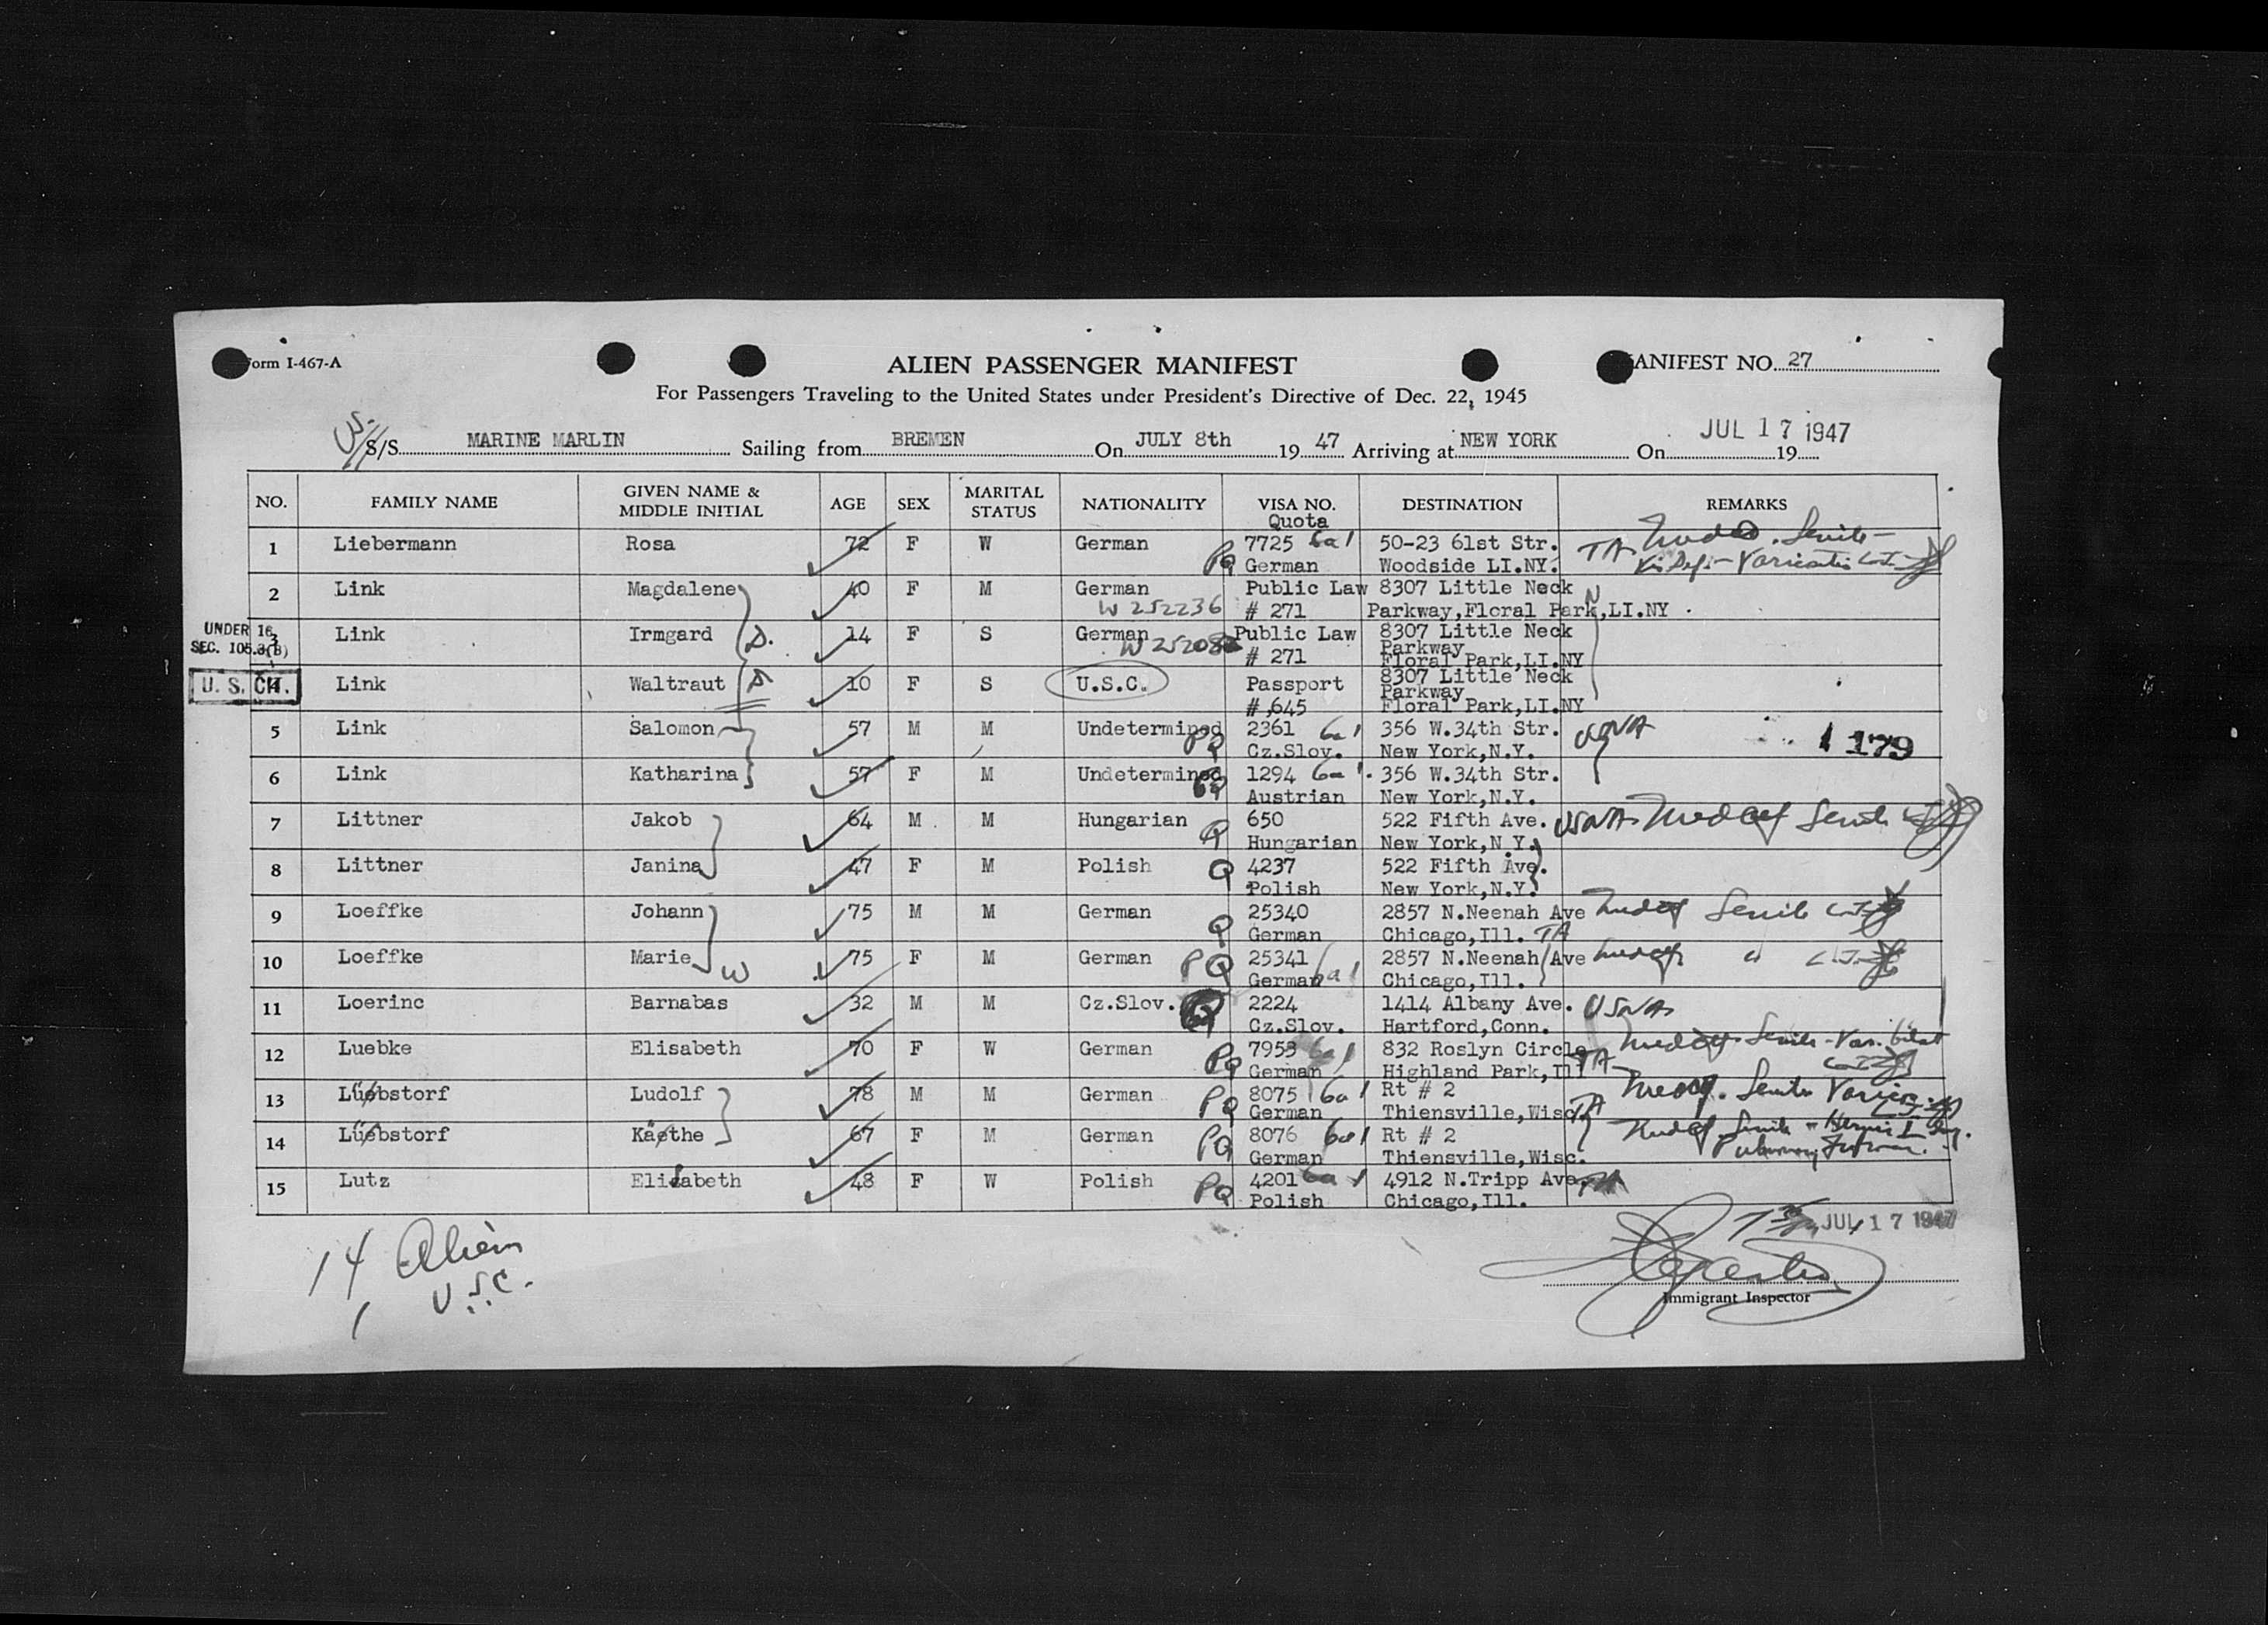 Form I-467-A
ALIEN PASSENGER MANIFEST
MANIFEST NO. 27
For Passengers Traveling to the United States under President's Directive of Dec. 22, 1945
S/S MARINE MARLIN Sailing from BREMEN On JULY 8th 19 47 Arriving at NEW YORK On JUL 17 1947 19
NO. FAMILY NAME GIVEN NAME & MIDDLE INITIAL AGE SEX MARITAL STATUS NATIONALITY VISA NO. Quota DESTINATION REMARKS
1 Liebermann Rosa 72 F W German PQ 7725 6a1 50-23 61st Str. TA
German Woodside LI.NY.
2 Link Magdalene 40 F M German Public Law 8307 Little Neck
W 252236 # 271 Parkway,Floral Park,LI.NY
UNDER 16
SEC. 105.3(B)
3 Link Irmgard 14 F S German Public Law 8307 Little Neck
# 271 Parkway
Floral Park,LI.NY
U. S. CIT.
4 Link Waltraut 10 F S U.S.C. Passport 8307 Little Neck
# 645 Parkway
Floral Park,LI.NY
5 Link Salomon 57 M M Undetermined PQ 2361 6a1 356 W.34th Str. USNA
Cz.Slov. New York,N.Y.
179
6 Link Katharina 57 F M Undetermined 1294 6a1 356 W.34th Str.
Austrian New York,N.Y.
7 Littner Jakob 64 M M Hungarian Q 650 522 Fifth Ave. USNA
Hungarian New York,N.Y.
8 Littner Janina 47 F M Polish Q 4237 522 Fifth Ave.
Polish New York,N.Y.
9 Loeffke Johann 75 M M German Q 25340 2857 N.Neenah Ave Senile
German Chicago,Ill. TA
10 Loeffke Marie W 75 F M German PQ 25341 6a1 2857 N.Neenah Ave "
German Chicago,Ill.
11 Loerinc Barnabas 32 M M Cz.Slov. 2224 1414 Albany Ave. USNA
Cz.Slov. Hartford,Conn.
12 Luebke Elisabeth 70 F W German PQ 7953 6a1 832 Roslyn Circle TA
German Highland Park,Ill
13 Lüebstorf Ludolf 78 M M German PQ 8075 6a1 Rt # 2 TA
German Thiensville,Wisc.
14 Lüebstorf Käethe 67 F M German PQ 8076 6a1 Rt # 2
German Thiensville,Wisc.
15 Lutz Elisabeth 48 F W Polish PQ 4201 6a1 4912 N.Tripp Ave. TA
Polish Chicago,Ill.
JUL 17 1947
14 Alien
1 U.S.C.
Immigrant Inspector